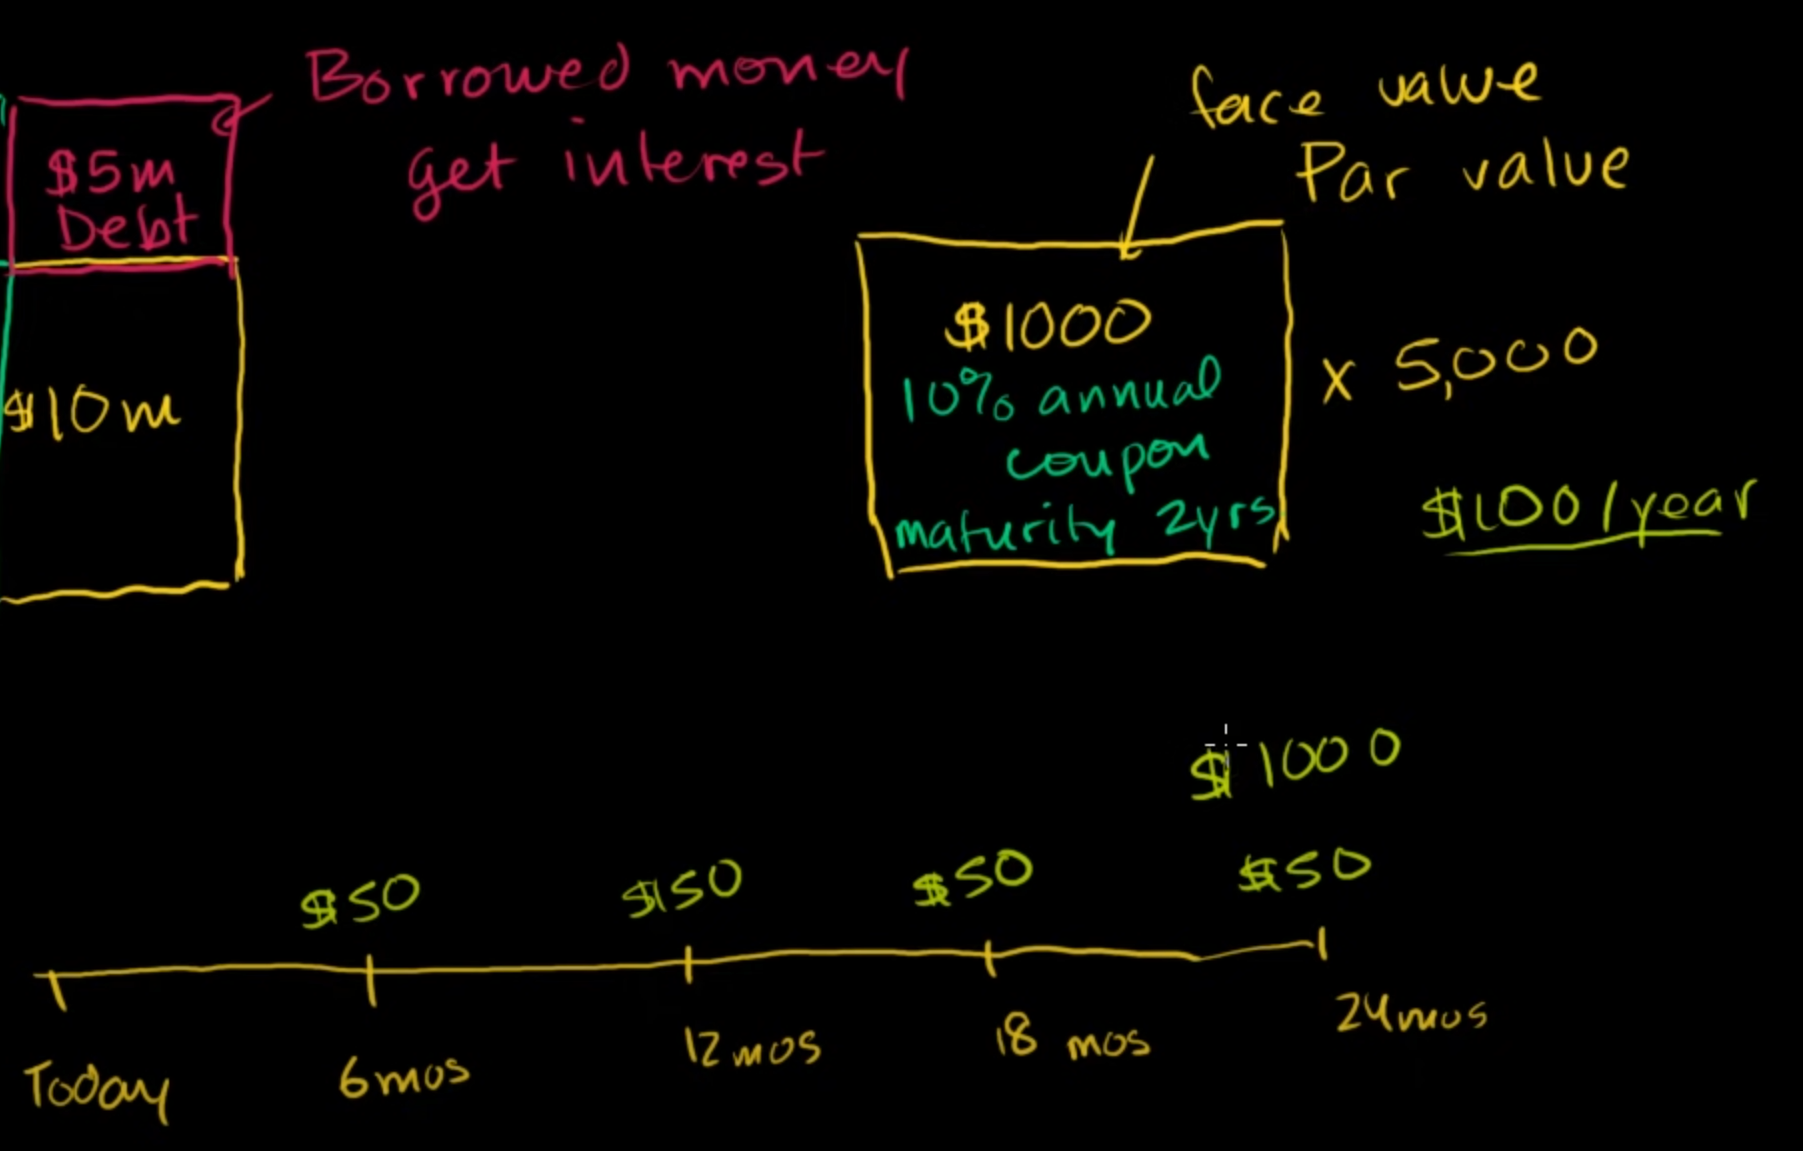 Borrowed money
get interest
$5m
Debt
$10m
face value
Par value
$1000
10% annual
coupon
maturity 2yrs
x 5,000
$100/year
$1000
$50
$50
$50
$50
Today
6mos
12mos
18 mos
24mos